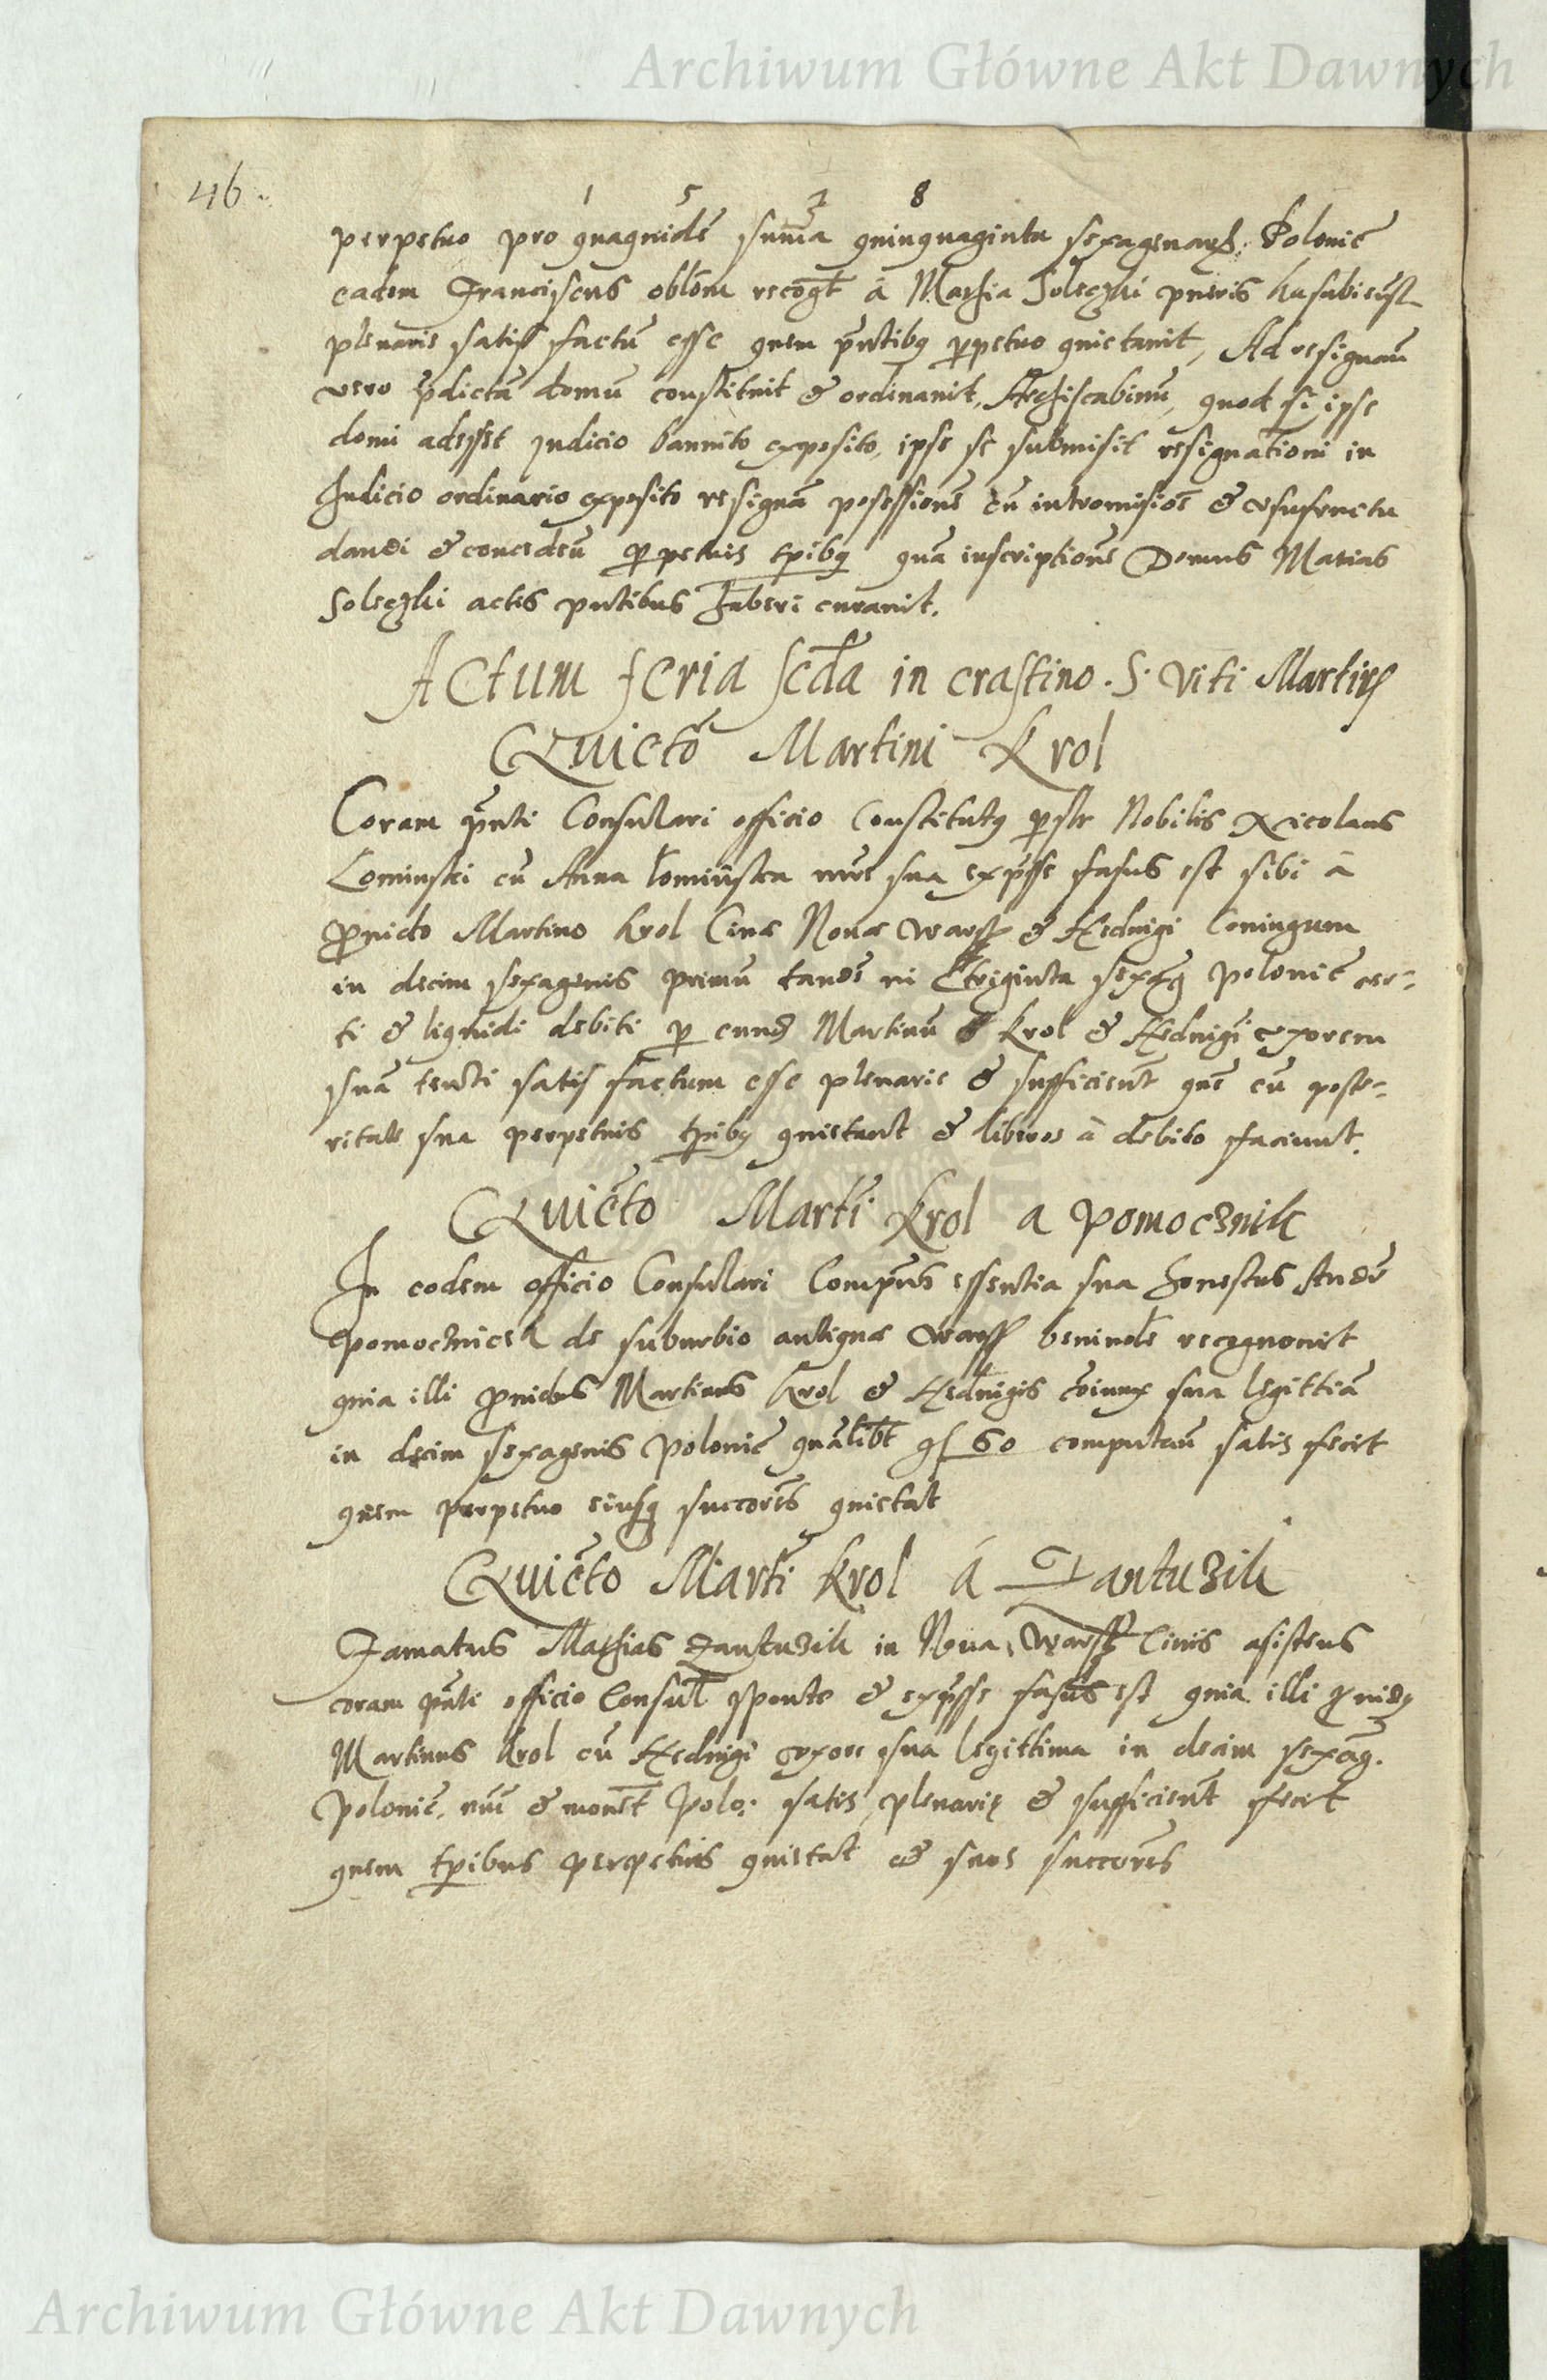 Archiwum Główne Akt Dawnych
46.
1 5 7 8
perpetuo pro quaquidē sum̄a quinquaginta sexagenarꝝ Polonic̄
eadem Franciscus oblōm recog̃t à Mathia Soleczki pueris
plenarie satis factū esse quem p̄ntibꝫ ꝑpetuo quietauit, Ad resignan̄
vero p̄dictā domū constituit & ordinauit, Archiscabinū, quod si ipse
domi adesset Judicio bannito exposito, ipse se submisit resignationi in
Judicio ordinario exposito resignā possessionē cū intromisiōe & vsufructu
dandi & concedēn ꝑpetuis tꝑibꝫ quā inscriptionē Domus Matias
Soleczki actis pn̄tibus Inseri curauit.
Actum feria scd̄a in crastino S. Viti Martirꝭ
Quietō Martini Krol
Coram p̄nti Consulari officio Constitutꝫ ꝑslr Nobilis Nicolaus
Lominski cū Anna Lominska sua exp̄sse fasus est sibi à
ꝓuido Martino Krol Ciue Nouae Warsz & Heduigi Coniugum
in decim sexagenis primū tandē in triginta sexagꝫ Polonic̄ cer-
ti & liquidi debiti ꝑ eundꝫ Martinū Krol & Heduigi vxorem
suā tenti satis factum esse plenarie & sufficienт̄ quē cū poste-
ritate sua perpetuis tꝑibꝫ quietant & liberos à debito faciunt.
Quiēto Martī Krol a Pomocznik
In eodem officio Consulari Comp̄ns essentia sua honestus Andr̄
Pomocznicek de suburbio antiquae Warss beniuolē recognouit
quia illi ꝓuidus Martinus Krol & Heduigis cōiunx sua legittiā
in decim sexagenis Polonic̄ quālibt̄ 60 computān satis fecit
quem perpetuo eiusqꝫ succorēs quietat
Quiēto Martī Krol á Pantuzik
Famatus Mathias Pantuzik in Noua Warsz Ciuis asistens
coram p̄nti officio Consul̄ sponte & exp̄sse fasus est quia illi ꝓuidꝫ
Martinus Krol cū Heduigi vxore sua legittima in decim sexāg.
Polonic̄, nūi & monēt Polo: satis, plenarię & sufficiēnt fecit
quem tꝑibus perpetuis quietat & suos succorēs
Archiwum Główne Akt Dawnych